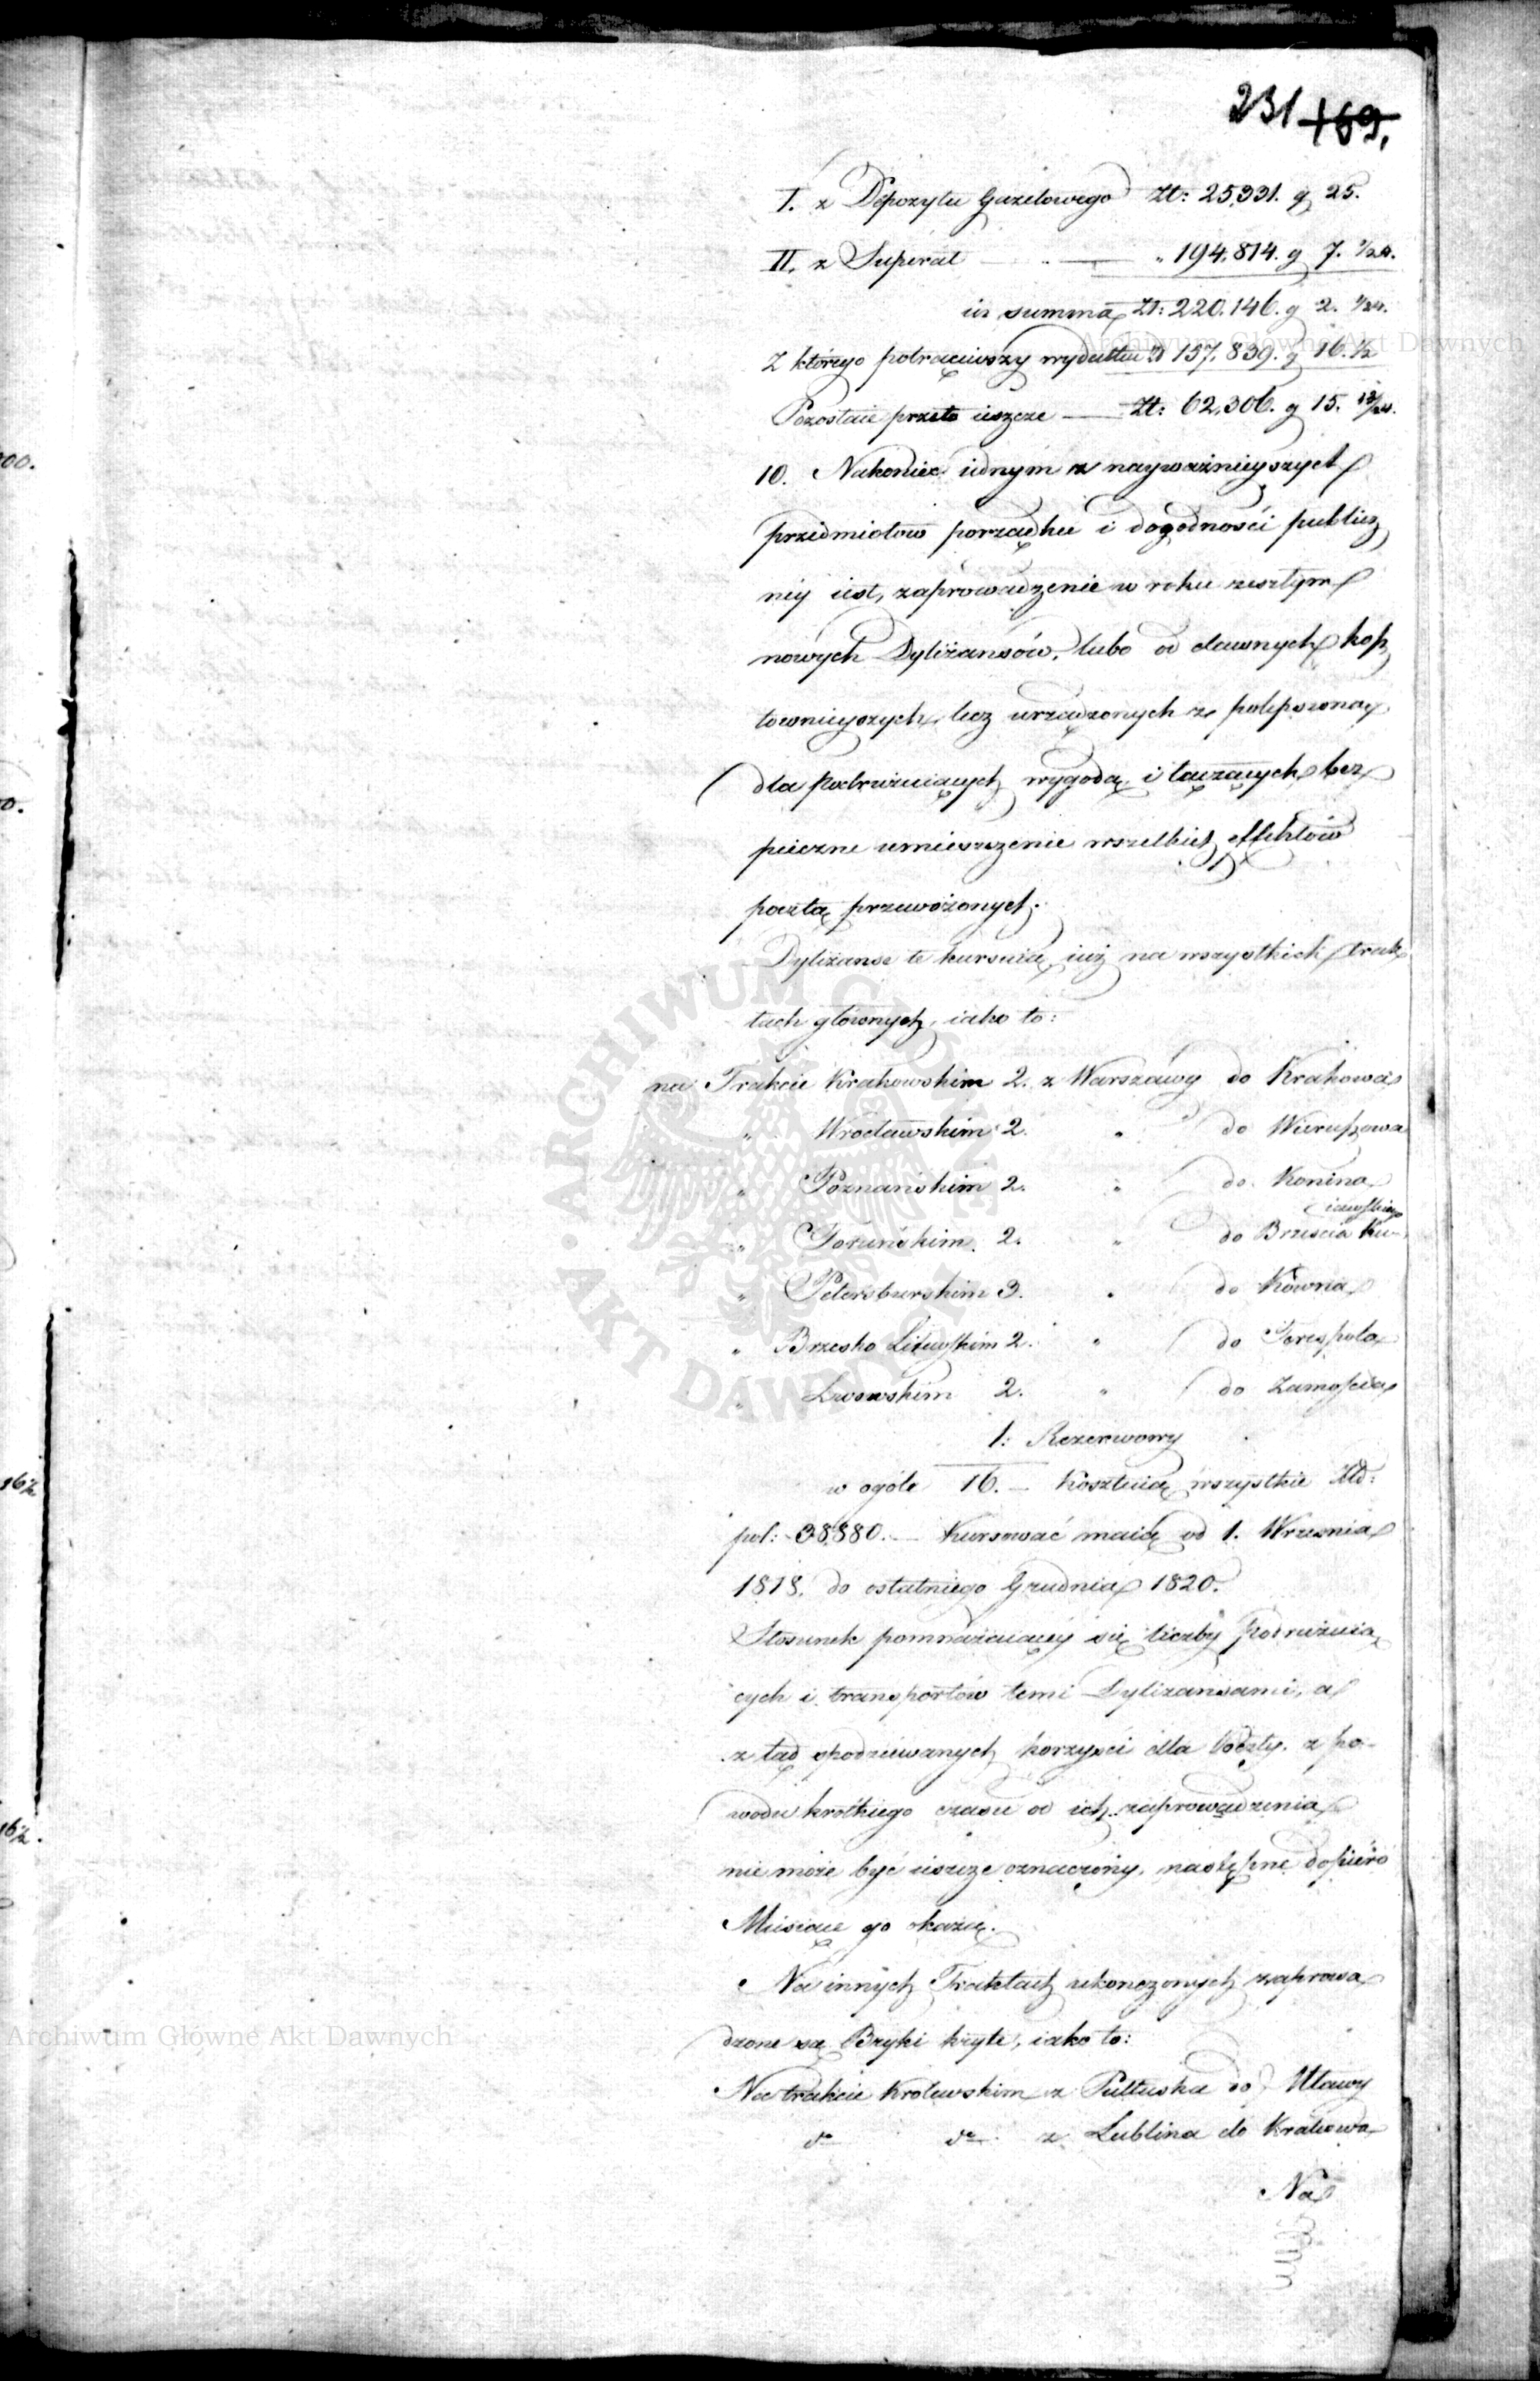 231 169.
I. z Depozytu Gazetowego Zł: 25,331. g 25.
II. z Superat — „ 194,814. g 7. 1/24.
in summa Zł: 220,146. g 2. 1/24.
Z którego potrąciwszy wydatku Zł 157,839. g 16. 1/2
Pozostaie przeto ieszcze — Zł: 62,306. g 15. 13/24.
10. Nakoniec iednym z nayważnieyszych
przedmiotów porządku i dogodności publicz
ney iest, zaprowadzenie w roku zeszłym
nowych Dyliżansów, lubo od dawnych kosz
townieyszych, lecz urządzonych z polepszoną
dla Podróżuiących wygodą, i łączących bez
pieczne umieszczenie wszelkich effektów
pocztą przewożonych.
Dyliżanse te kursuią iuż na wszystkich trak
tach głównych, iako to:
na Trakcie Krakowskim 2. z Warszawy do Krakowa
„ Wrocławskim 2. „ do Wieruszowa
„ Poznańskim 2. „ do Konina
iawskiego
„ Toruńskim 2. „ do Brześcia Ku-
„ Petersburskim 3. „ do Kowna
„ Brzesko Litewskim 2. „ do Terespola
„ Lwowskim 2. „ do Zamościa
1: Rezerwowy
w ogóle 16. — Kosztuią wszystkie Złł:
pol: 38880. — Kursować maią od 1. Września
1818. do ostatniego Grudnia 1820.
Stosunek pomnażaiącey się liczby Podróżuią
cych i transportów temi Dyliżansami, a
z tąd spodziewanych korzyści dla Poczty, z po-
wodu krótkiego czasu od ich zaprowadzenia
nie może być ieszcze oznaczony, następne dopiéro
Miesiące go okażą.
Na innych Traktach ukończonych zaprowa
dzone są Bryki kryte, iako to:
Na trakcie Królewskim z Pułtuska do Mławy
do do z Lublina do Krakowa
Na
00.
0.
16 1/2
16 1/2.
Archiwum Główne Akt Dawnych
ARCHIWUM GŁÓWNE AKT DAWNYCH
Archiwum Główne Akt Dawnych